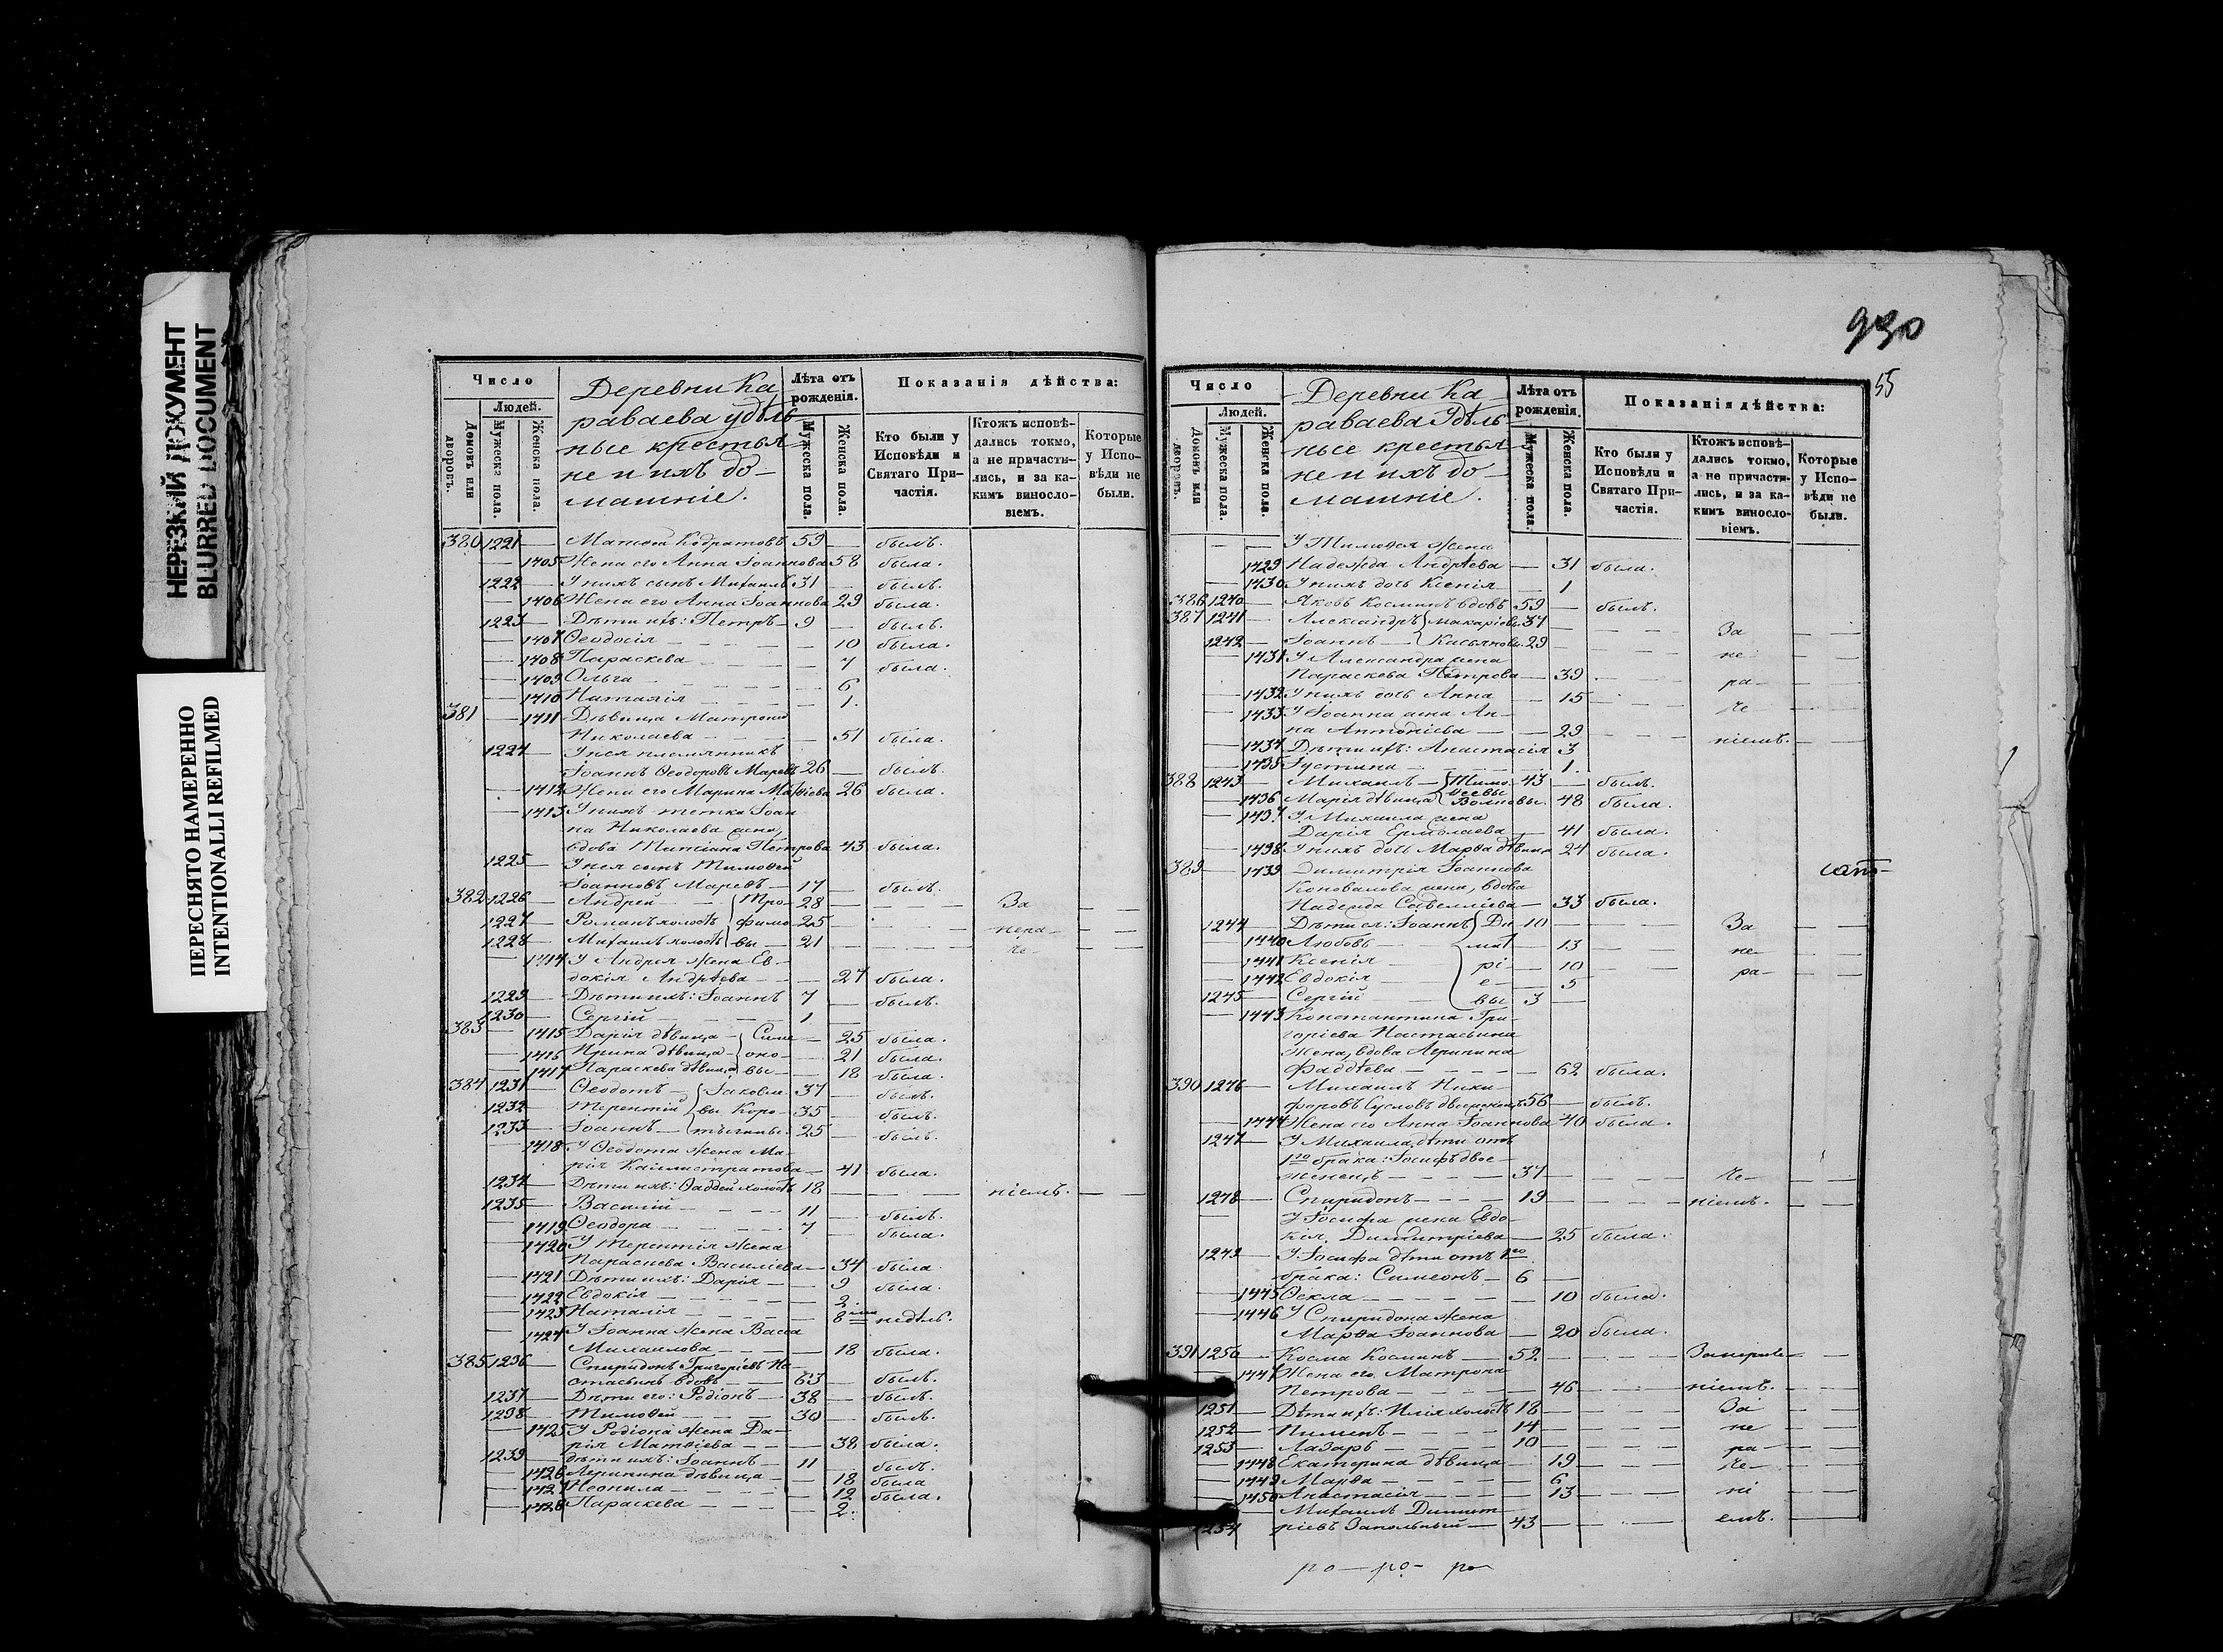 НЕРЕЗКИЙ ДОКУМЕНТ
BLURRED DOCUMENT
ПЕРЕСНЯТО НАМЕРЕННО
INTENTIONALLI REFILMED
Число
Людей.
Домовъ или дворовъ.
Мужеска пола.
Женска пола.
Деревни Ка
раваева удѣль
ные крестья
не и ихъ до-
машніе.
Лѣта отъ рожденія.
Мужеска пола.
Женска пола.
Показанія дѣйства:
Кто были у Исповѣди и Святаго При-частія.
Ктожъ исповѣ-дались токмо, а не причасти-лись, и за ка-кимъ винословіемъ.
Которые у Испо-вѣди не были.
380 1221 — Кодратовъ 59 — былъ.
— 1405 Жена его Анна Іоаннова 58 была.
1222 — У нихъ сынъ Михаилъ 31 — былъ.
— 1406 Жена его Анна Іоаннова 29 была.
1223 — Дѣти ихъ: Петръ 9 — былъ.
— 1407 Ѳеодосія — 10 была.
— 1408 Параскева — 7 была.
— 1409 Ольга — 6
— 1410 Наталія — 1.
381 — 1411 Дѣвица Матрона
Николаева — 51 была.
1224 — У нея племянникъ
Іоаннъ Ѳеодоровъ Маревъ 26 — былъ.
— 1412 Жена его Марина 26 была.
— 1413 У нихъ тетка Іоан
на Николаева жена,
вдова Татіана Петрова 43 была.
1225 — У нея сынъ Тимоѳей
Іоанновъ Маревъ — 17 — былъ.
382 1226 — Андрей — Тро- 28 — За
1227 — Романъ холостъ фимо 25 — нера-
1228 — Михаилъ холостъ вы — 21 — че-
— 1414 У Андрея жена Ев-
докія Андрѣева — 27 была.
1229 — Дѣти ихъ: Іоаннъ 7 — былъ.
1230 — Сергій — 1 —
383 — 1415 Дарія дѣвица — Симе — 25 была.
— 1416 Ирина дѣвица — оно- — 21 была.
— 1417 Параскева дѣвица вы — 18 была.
384 1231 — Ѳеодотъ — Іаковле 37 — былъ.
1232 — Терентій вы Коро- 35 — былъ.
1233 — Іоаннъ — 25 — былъ.
— 1418 У Ѳеодота жена Ма-
рія Каллистратова — 41 была.
1234 — Дѣти ихъ: Ѳаддей холостъ 18 — ніемъ.
1235 — Василій — 11 — былъ.
— 1419 Ѳеодора — 7 — была.
— 1420 У Терентія жена
Параскева Василіева — 34 была.
— 1421 Дѣти ихъ: Дарія — 9 была.
— 1422 Евдокія — 2.
— 1423 Наталія — 8 недѣль.
— 1424 У Іоанна жена Васса
Михаилова — 18 была.
385 1236 — Спиридонъ Григоріевъ На-
стасьинъ вдовъ — 63 — былъ.
1237 — Дѣти его: Родіонъ — 38 — былъ.
1238 — Тимоѳей — 30 — былъ.
— 1425 У Родіона жена Да-
рія Матвіева — 38 была.
1239 — дѣти ихъ: Іоаннъ — 11 былъ.
— 1426 Агрипина дѣвица — 18 была
— 1427 Неонила — 12 была.
— 1428 Параскева — 2.
930
55
Число
Людей.
Домовъ или дворовъ.
Мужеска пола.
Женска пола.
Деревни Ка
раваева Удѣль
ные крестья
не и ихъ до-
машніе.
Лѣта отъ рожденія.
Мужеска пола.
Женска пола.
Показанія дѣйства:
Кто были у Исповѣди и Святаго При-частія.
Ктожъ исповѣ-дались токмо, а не причасти-лись, и за ка-кимъ винословіемъ.
Которые у Испо-вѣди не были.
— — У Тимоѳея жена
1429 Надежда Андрѣева — 31 была.
— 1430 У нихъ дочь Ксенія — 1
386 1240 — Яковъ Косминъ вдовъ 59 — былъ.
387 1241 — Александръ Макаріевы 37 — За
1242 — Іоаннъ — Касьяновы 29 — не
— 1431 У Александра жена
Параскева Петрова — 39 ра-
— 1432 У нихъ дочь Анна — 15 че
— 1433 У Іоанна жена Ан-
на Антоніева — 29 ніемъ.
— 1434 Дѣти ихъ: Анастасія 3
— 1435 Іустина — 1.
388 1243 — Михаилъ — Тимо 43 — былъ.
— 1436 Марія дѣвица ѳеевы 48 была.
— 1437 У Михаила жена
Дарія Ермолаева — 41 была.
— 1438 У нихъ дочь Марѳа дѣвица 24 была.
389 — 1439 Димитрія Іоаннова
Коновалова жена, вдова
Надежда Савелліева — 33 была.
1244 — Дѣти ея: Іоаннъ Ди 10 — За
— 1440 Любовь — мит 13 не
— 1441 Ксенія — рі — 10 ра-
— 1442 Евдокія — е — 5
1245 — Сергій — вы 3 —
— 1443 Константина Гри-
горіева Настасьина
жена, вдова Агрипина
Фаддѣева — 62 была.
390 1246 — Михаилъ Ники-
форовъ Сусловъ двоеженецъ 56 — былъ.
— 1444 Жена его Анна Іоаннова 40 была.
1247 — У Михаила дѣти отъ
1го брака: Іосифъ двое-
женецъ — 37 — че-
1248 — Спиридонъ — 19 — ніемъ.
У Іосифа жена Евдо-
кія Димитріева — 25 была.
1249 — У Іосифа дѣти отъ 1го
брака: Симеонъ — 6 —
— 1445 Ѳекла — 10 была.
— 1446 У Спиридона жена
Марѳа Іоаннова — 20 была.
391 1250 — Косма Косминъ — 52 —
— 1447 Жена его Матрона
Петрова — 46 ніемъ.
1251 — Дѣти ихъ: Илія холостъ 18 — За
1252 — Пименъ — 14 — не
1253 — Лазарь — 10 — ра-
— 1448 Екатерина дѣвица — 19 че-
— 1449 Марѳа — 6
— 1450 Анастасія — 13 ні
Михаилъ Димит-
1254 ріевъ Запольный — 43 емъ.
ро — ро — ро